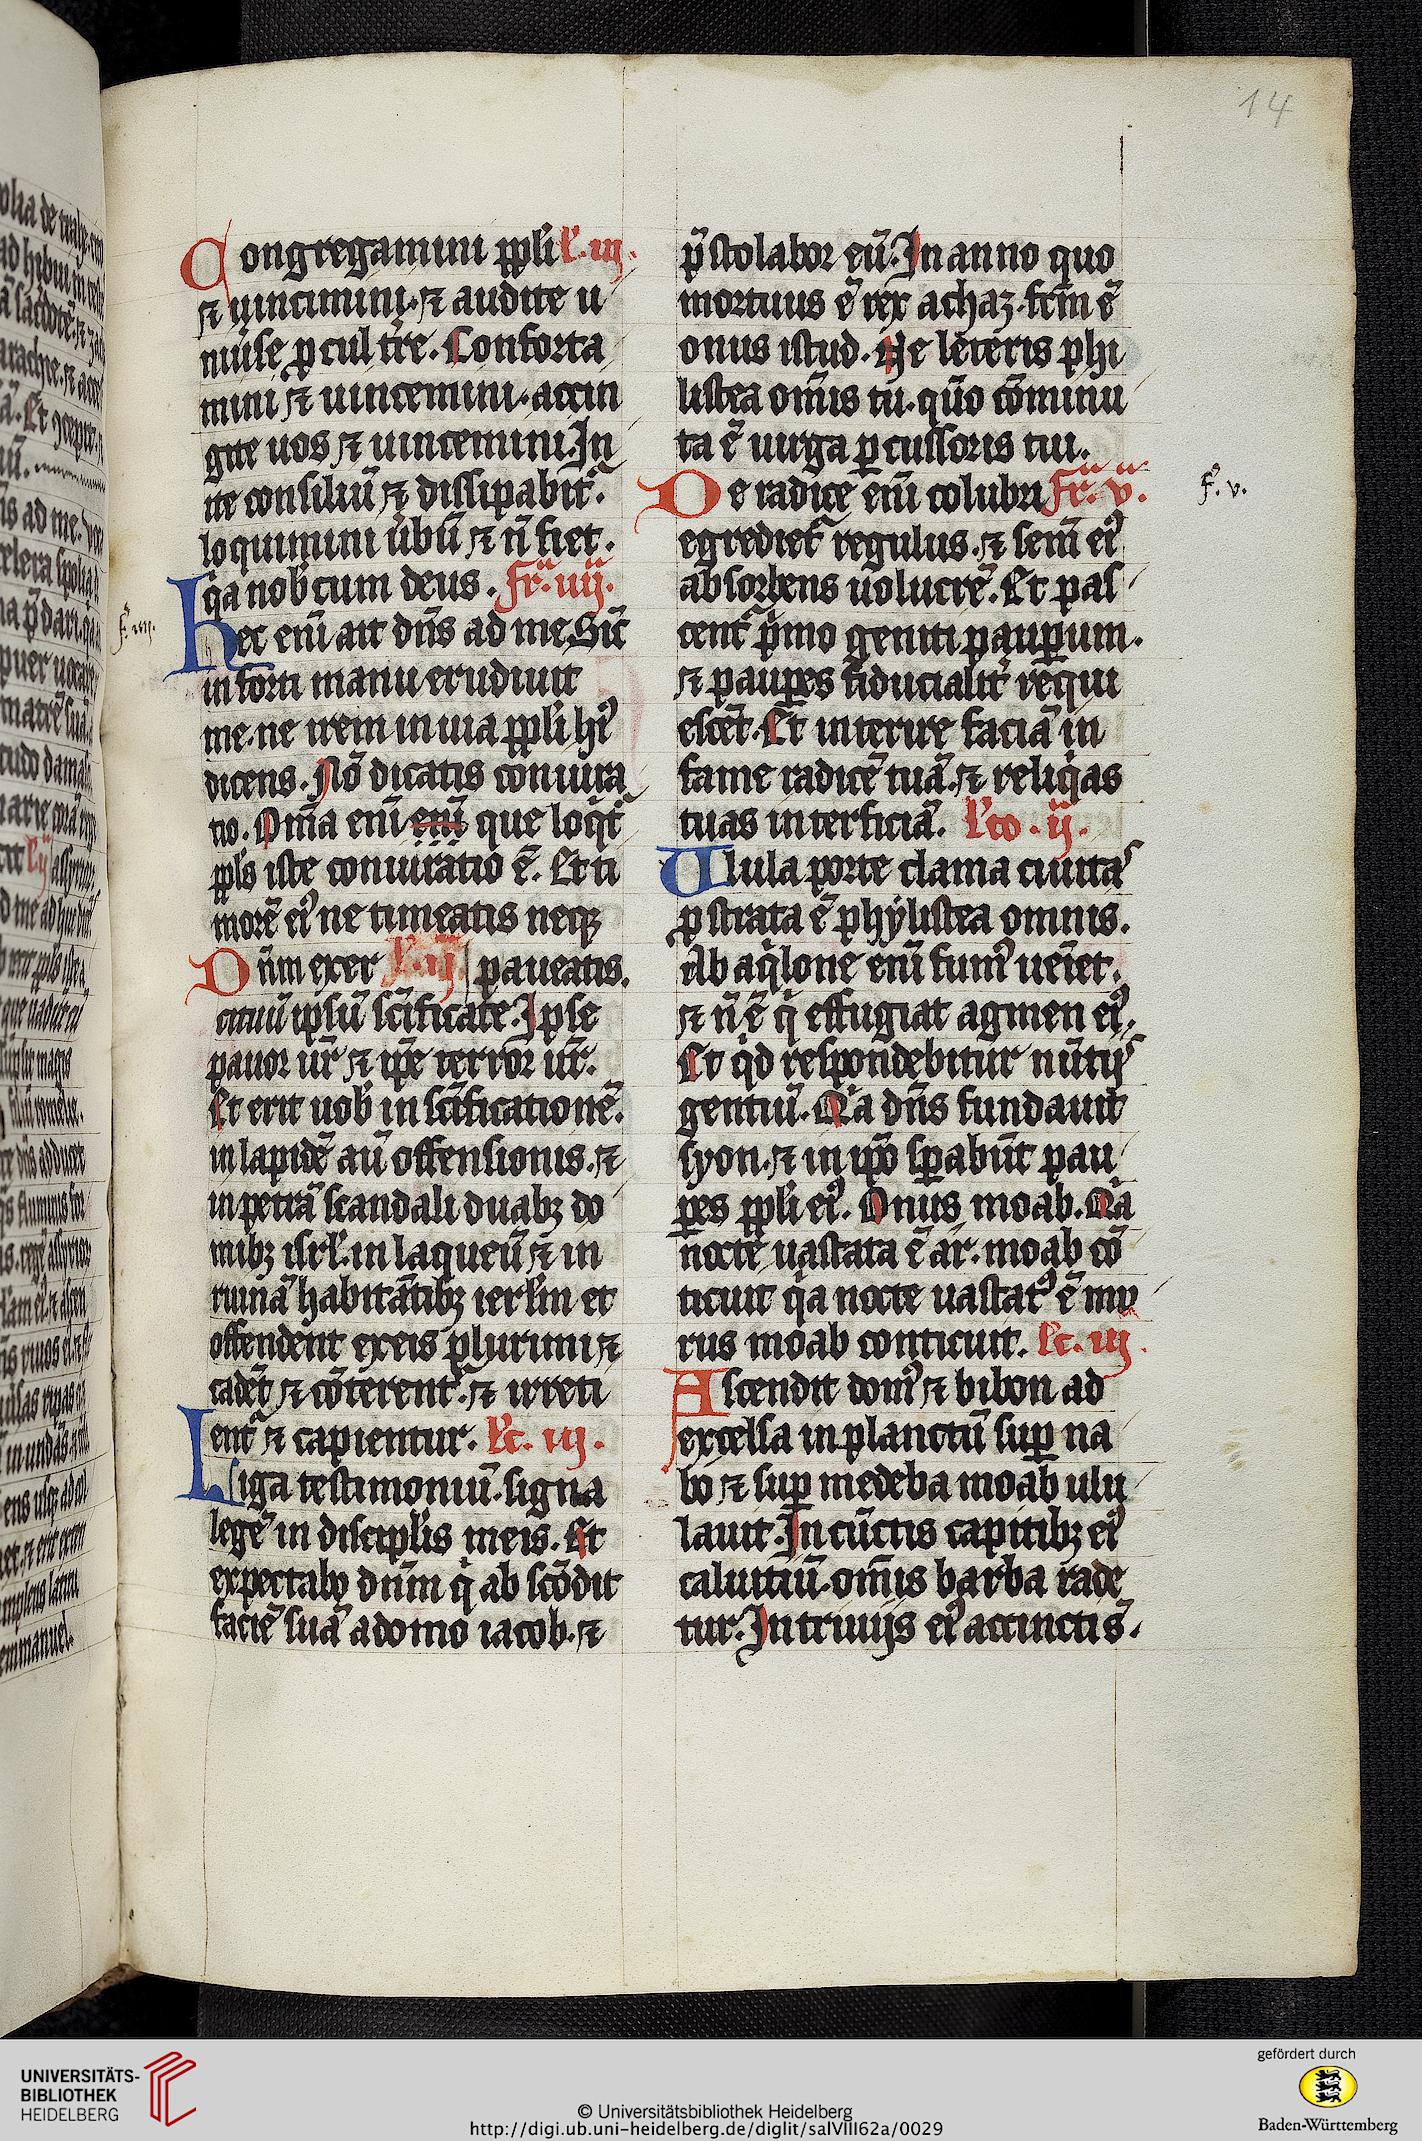 14
Congregamini ppl'i L'. iij.
⁊ uincimini. ⁊ audite u
niũse p cul tr̃e. Conforta
mini ⁊ uincemini. accin
gite uos ⁊ uincemini. In
ite consiliũ ⁊ dissipabit᷑.
loquimini ũbũ ⁊ ñ fiet.
q̇a nob̾cum deus. Fr̃. iiij.
f. iiij.
hec eni᷑ ait dñs ad me. Sic̃
in forti manu erudiuit
me. ne irem in uia ppl'i hi᷒
dicens. Nõ dicatis coniura
tio. Om̃a eni᷑ eni᷑ que loq̇t᷑
ppl's iste coniuratio ẽ. Et ti
morẽ ei᷒ ne timeatis neqꝫ
Dñm exer L'. ij. paueatis.
cituũ ipsũ sc̃ificate. Ipse
pauor ur̃ ⁊ ip̃e terror ur̃.
Et erit uob̾ in sc̃ificationẽ.
in lapidẽ aũ offensionis. ⁊
in petrã scandali duabꝫ do
mibꝫ isrl'. in laqueũ ⁊ in
ruinã habitãtibꝫ ierl'm et
offendent ex eis plurimi ⁊
cadẽt ⁊ cõterent᷑. ⁊ irreti
ent᷑ ⁊ capientur. L'c. iij.
Liga testimoniũ. signa
legẽ in discipl'is meis. Et
expectabo dñm q̇ ab scõdit
faciẽ suã a domo iacob. ⁊
p̃stolabor eũ. In anno quo
mortuus ẽ rex achaz. fc̃m ẽ
onus istud. Ne leteris phi
listea om̃is tu. qũo cõminu
ta ẽ uirga ꝑcussoris tui.
De radice eni᷑ colubri Fr̃. v.
f. v.
egrediet᷑ regulus. ⁊ sem̃ ei᷒
absorbens uolucrẽ. Et pas
cent᷑ p̃mo geniti pauꝑum.
⁊ pauꝑes fiducialit᷑ req̇ui
escẽt. Et interire faciã in
fame radicẽ tuã. ⁊ reliq̇as
tuas interficiã. L'co. ij.
Ulula porte clama ciuitas
ꝓstrata ẽ phylistea omnis.
Ab aq̇lone eni᷑ fum᷒ ueĩet.
⁊ ñ ẽ q̇ effugiat agmen ei᷒.
Et q̇d respondebitur nũtijs
gentiũ. Q̇a dñs fundauit
syon. ⁊ in ip̃o sꝑabũt pau
ꝑes ppl'i ei᷒. Onus moab. Q̇a
nocte uastata ẽ ar. moab cõ
ticuit q̇a nocte uastat᷒ ẽ mu
rus moab conticuit. L'c. iij.
Ascendit dom᷒ ⁊ bibon ad
excelsa in planctũ suꝑ na
bo ⁊ suꝑ medeba moab ulu
lauit. In cũctis capitibꝫ ei᷒
caluitiũ. om̃is barba rade
tur. In triuijs ei᷒ accinctis.
UNIVERSITÄTS-
BIBLIOTHEK
HEIDELBERG
© Universitätsbibliothek Heidelberg
http://digi.ub.uni-heidelberg.de/diglit/salVIII62a/0029
gefördert durch
Baden-Württemberg